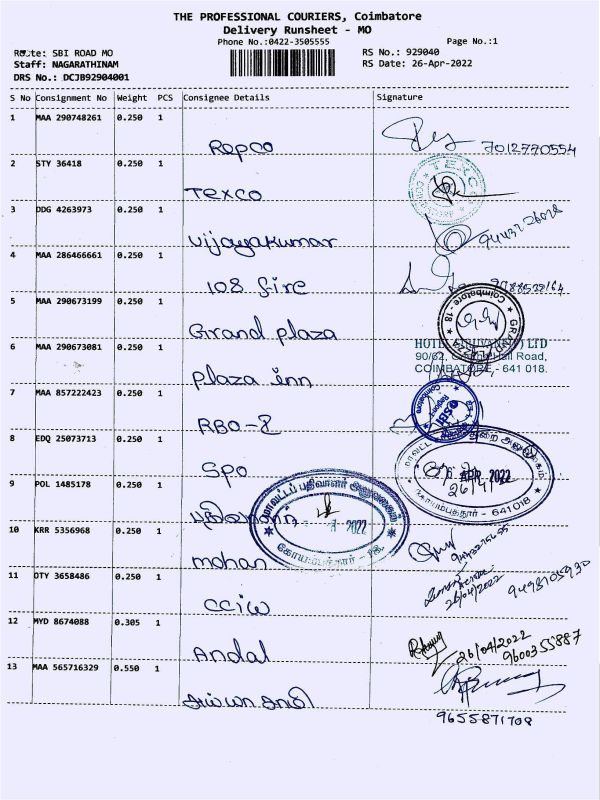 THE PROFESSIONAL COURIERS, Coimbatore
Delivery Runsheet - MO
Phone No.:0422-3505555
Page No.:1
Route: SBI ROAD MO
RS No.: 929040
Staff: NAGARATHINAM
RS Date: 26-Apr-2022
DRS No.: DCJB92904001
S No Consignment No Weight PCS Consignee Details Signature
1 MAA 290748261 0.250 1
Repco 7012770554
2 STY 36418 0.250 1
Texco
3 DDG 4263973 0.250 1
Vijayakumar
4 MAA 286466661 0.250 1
108 fire
5 MAA 290673199 0.250 1
Coimbatore - 18
Grand plaza
6 MAA 290673081 0.250 1
90/62, Hall Road,
COIMBATORE - 641 018.
plaza inn
7 MAA 857222423 0.250 1
SBI
RBO-2
8 EDQ 25073713 0.250 1
SPO
APR 2022
கோயம்புத்தூர் - 641018
9 POL 1485178 0.250 1
மாவட்டப் பதிவாளர் அலுவலகம்
2022
10 KRR 5356968 0.250 1
mohan
11 OTY 3658486 0.250 1
26/04/2022 9498105930
CCIW
12 MYD 8674088 0.305 1
26/04/2022
9600355887
Andal
13 MAA 565716329 0.550 1
அய்யாசாமி
9655871708